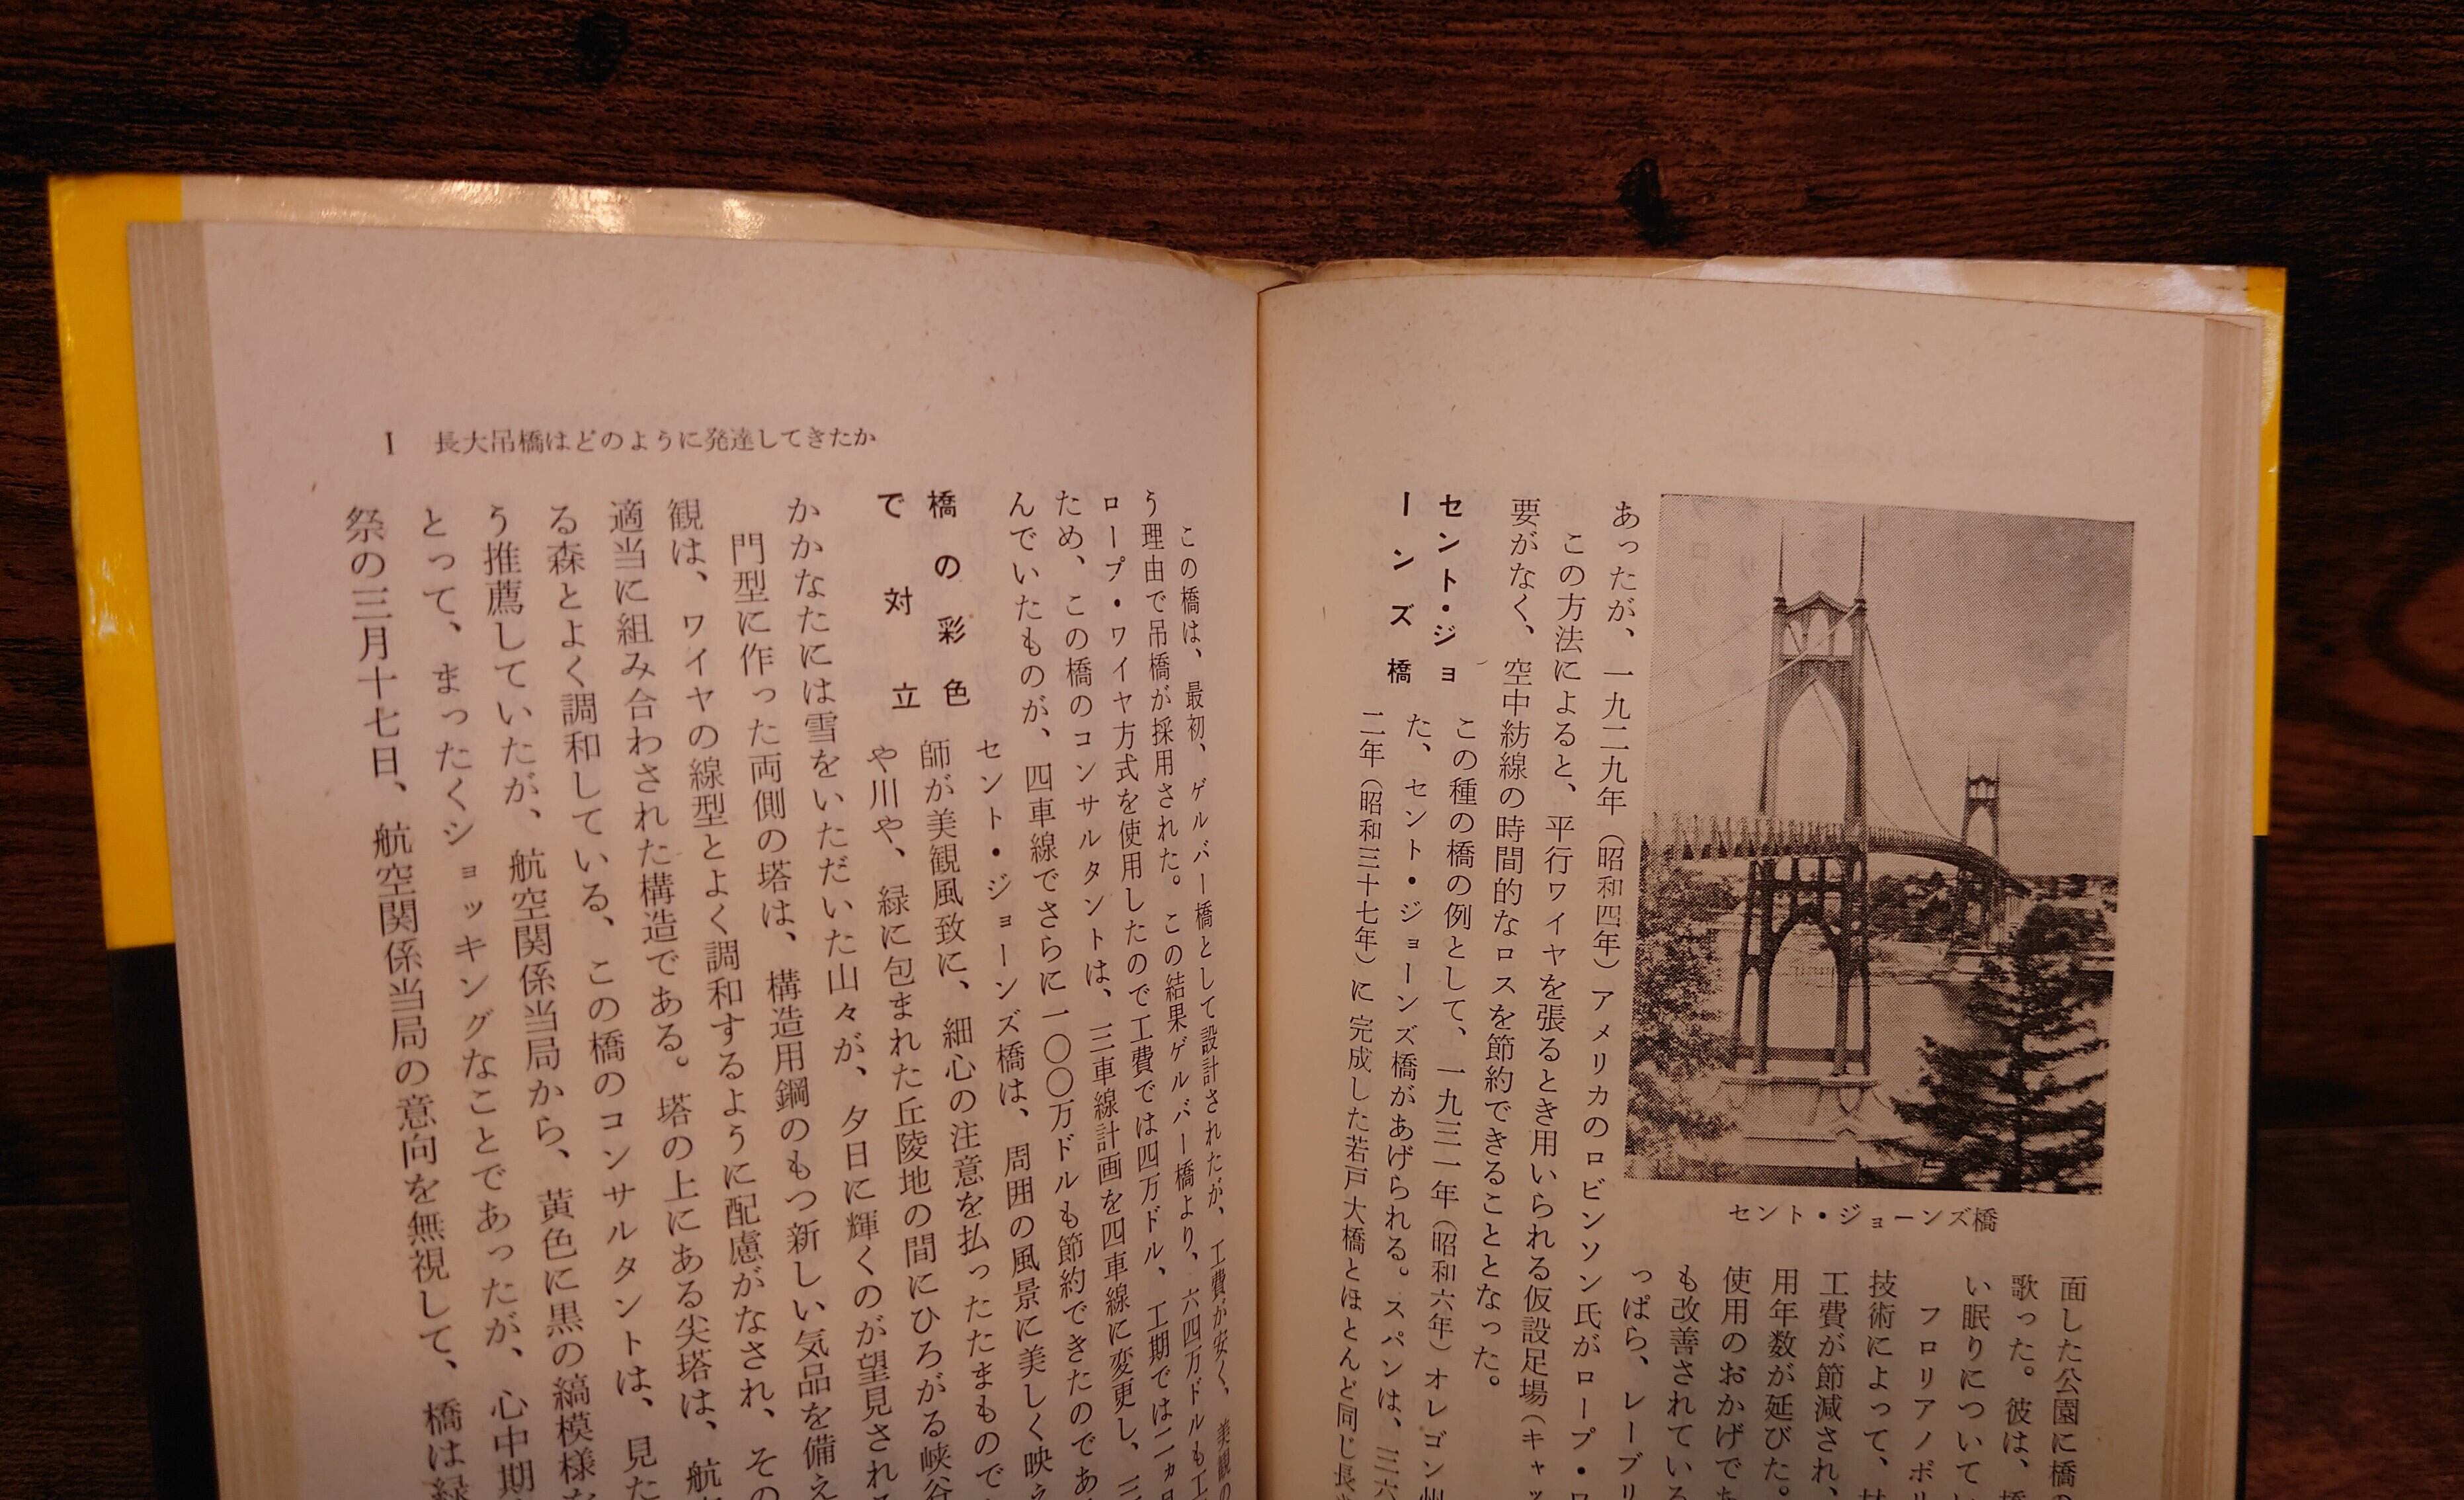 面した公園に橋の
歌った。彼は、橋
い眠りについてい
フロリアノポリ
技術によって、材
工費が節減され、
用年数が延びた。
使用のおかげでた
も改善されている
っぱら、レーブリ
セント・ジョーンズ橋
あったが、一九二九年（昭和四年）アメリカのロビンソン氏がロープ・ワ
この方法によると、平行ワイヤを張るとき用いられる仮設足場（キャッ
要がなく、空中紡線の時間的なロスを節約できることとなった。
セント・ジョ
ーンズ橋
この種の橋の例として、一九三一年（昭和六年）オレゴン州
た、セント・ジョーンズ橋があげられる。スパンは、三六
二年（昭和三十七年）に完成した若戸大橋とほとんど同じ長
I 長大吊橋はどのように発達してきたか
この橋は、最初、ゲルバー橋として設計されたが、工費が安く、美観の
う理由で吊橋が採用された。この結果ゲルバー橋より、六四万ドルも工
ロープ・ワイヤ方式を使用したので工費では四万ドル、工期では二ヵ月
ため、この橋のコンサルタントは、三車線計画を四車線に変更し、三
んでいたものが、四車線でさらに一〇〇万ドルも節約できたのであ
橋の彩色
で対立
セント・ジョーンズ橋は、周囲の風景に美しく映え
師が美観風致に、細心の注意を払ったたまもので
や川や、緑に包まれた丘陵地の間にひろがる峡谷
かかなたには雪をいただいた山々が、夕日に輝くのが望見される
門型に作った両側の塔は、構造用鋼のもつ新しい気品を備え
観は、ワイヤの線型とよく調和するように配慮がなされ、その
適当に組み合わされた構造である。塔の上にある尖塔は、航
る森とよく調和している。この橋のコンサルタントは、見た
う推薦していたが、航空関係当局から、黄色に黒の縞模様を
とって、まったくショッキングなことであったが、心中期
祭の三月十七日、航空関係当局の意向を無視して、橋は緑